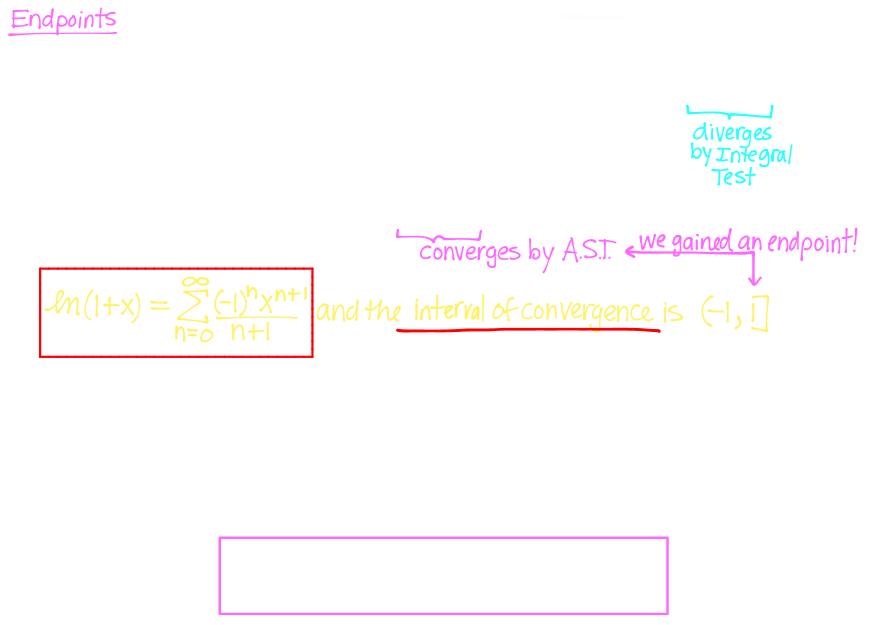 Endpoints
diverges
by Integral
Test
converges by A.S.T. we gained an endpoint!
ln(1+x) = ∑_{n=0}^{∞} (-1)^n x^{n+1} / n+1 and the interval of convergence is (-1, 1]